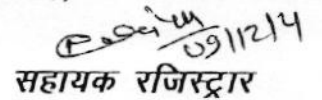 09/12/14
सहायक रजिस्ट्रार